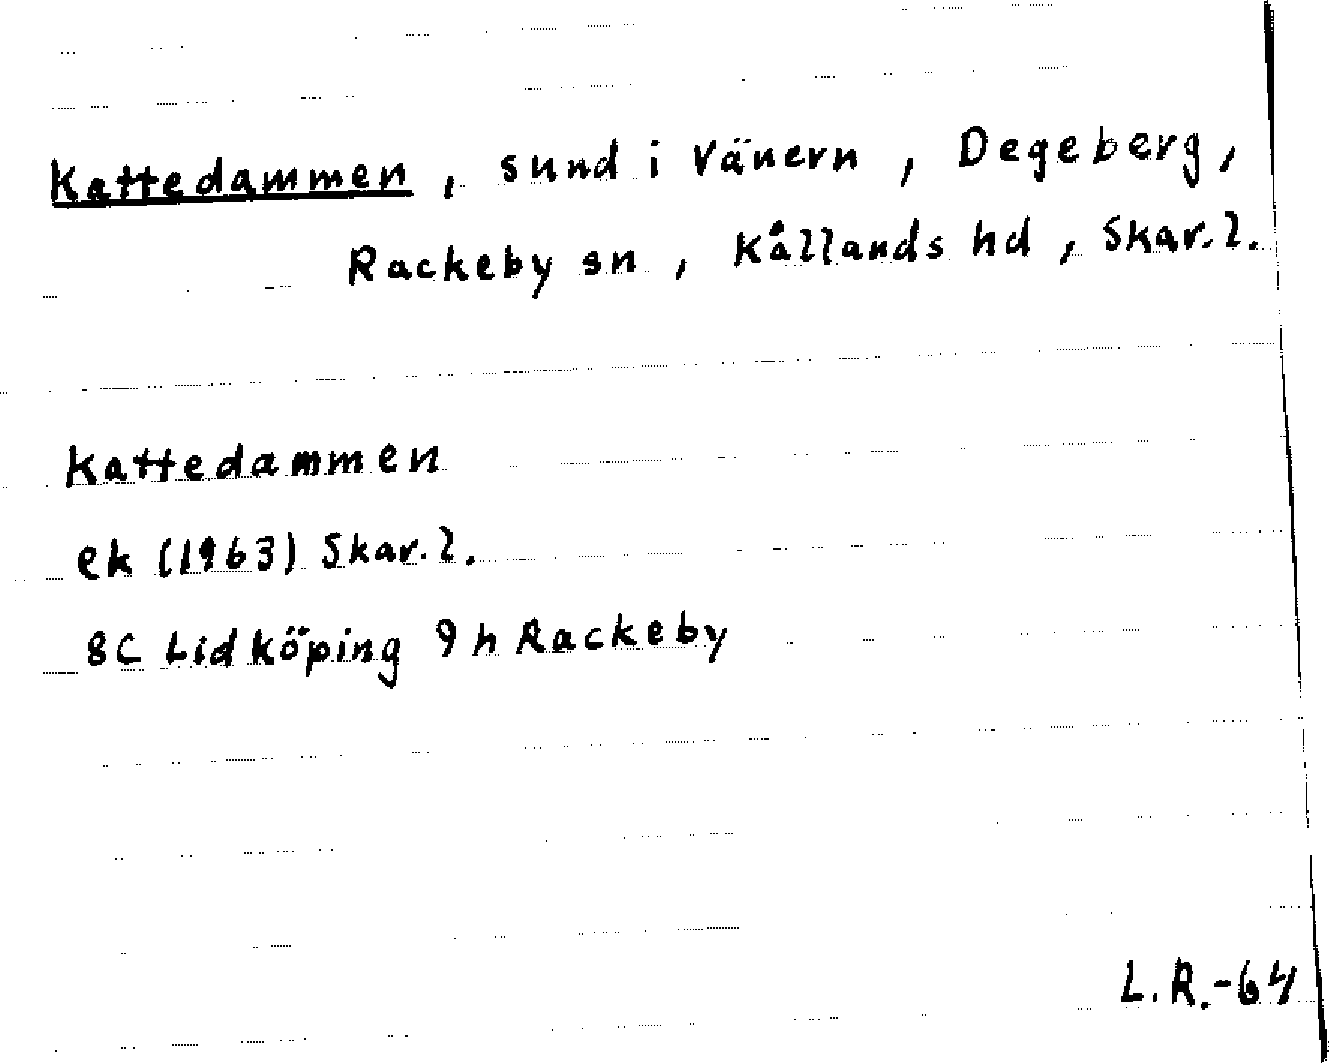 Kattedammen, sund i Vänern, Degeberg,
Rackeby sn, Kållands hd, Skar. l.
Kattedammen
ek (1963) Skar. l.
8C Lidköping 9h Rackeby
L.R.-64